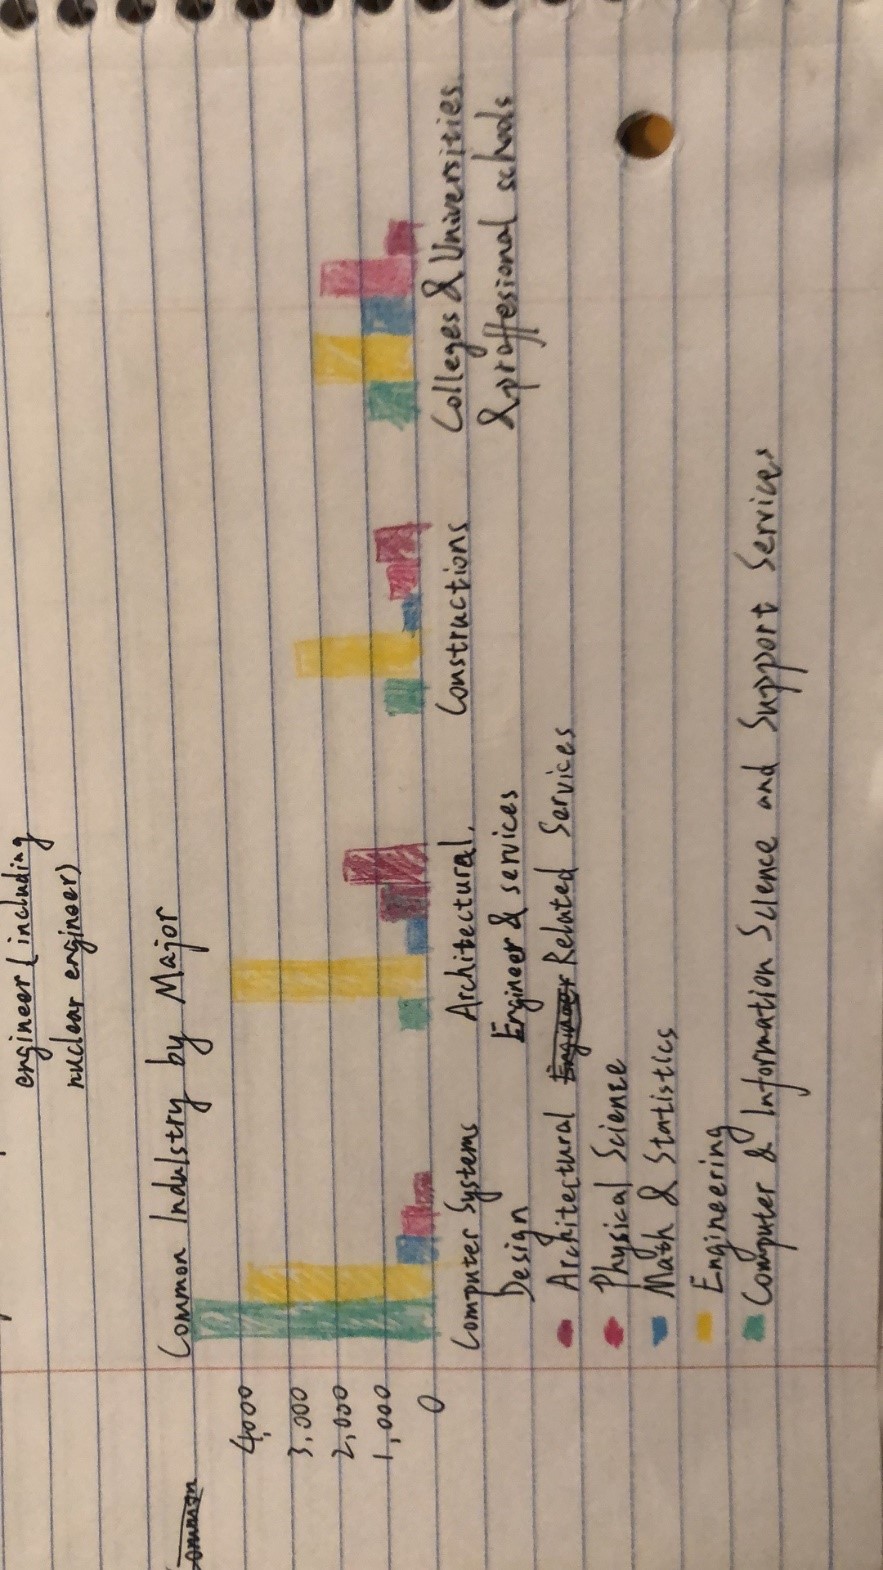 engineer (including
nuclear engineer)
Common
Common Industry by Major
4,000
3,000
2,000
1,000
0
Computer Systems
Design
Architectural,
Engineer & services
Constructions
Colleges & Universities
& proffesional schools
Architectural Engineer Related Services
Physical Science
Math & Statistics
Engineering
Computer & Information Science and Support Services